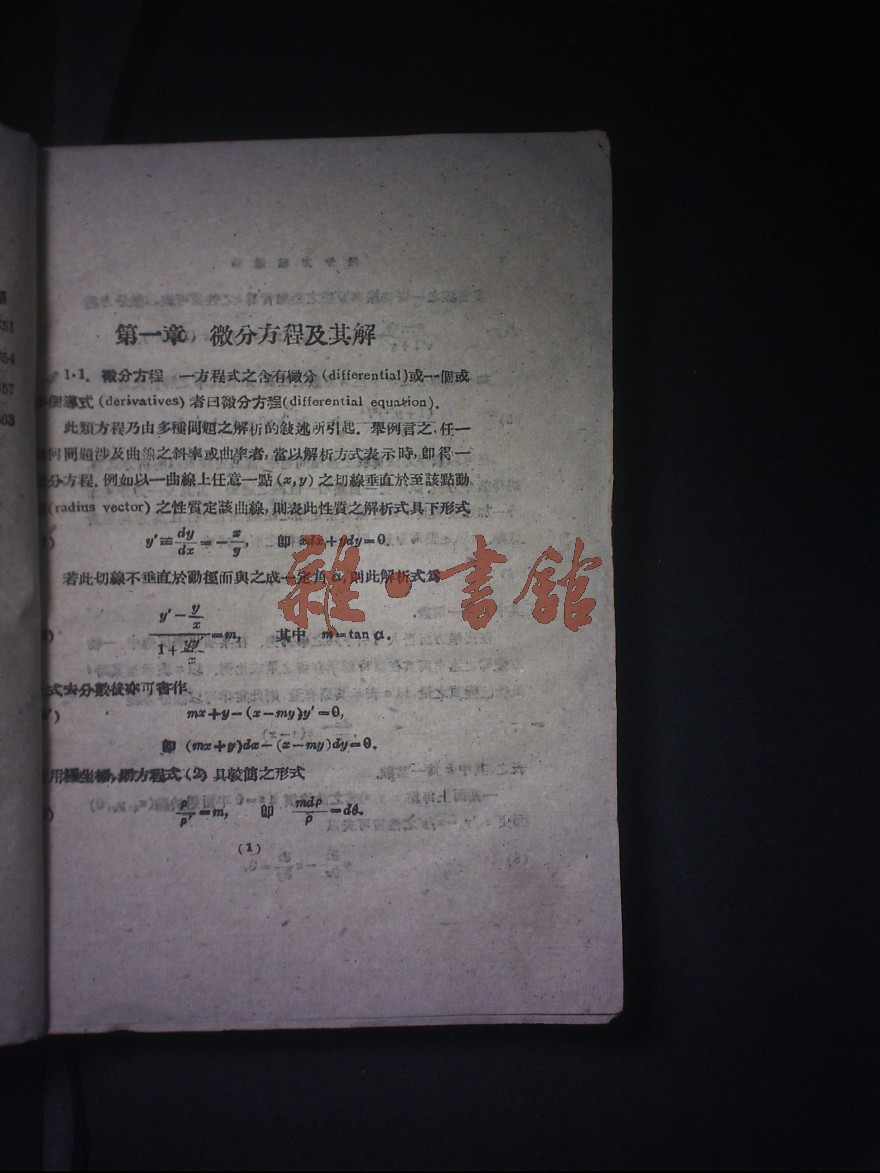 第一章 微分方程及其解
1·1. 微分方程 一方程式之含有微分 (differential)或一個或
個導式 (derivatives) 者曰微分方程(differential equation).
此類方程乃由多種問題之解析的敍述所引起. 舉例言之, 任一
何問題涉及曲線之斜率或曲率者, 當以解析方式表示時, 卽得一
分方程. 例如以一曲線上任意一點 (x, y) 之切線垂直於至該點動
(radius vector) 之性質定該曲線, 則表此性質之解析式具下形式
y′≡dy/dx=−x/y, 卽 xdx+ydy=0.
若此切線不垂直於動徑而與之成一定角 α, 則此解析式爲
(y′−y/x)/(1+yy′/x)=m, 其中 m=tan α.
式去分數後亦可書作
′) mx+y−(x−my)y′=0,
卽 (mx+y)dx−(x−my)dy=0.
用極坐標, 則方程式 (2) 具較簡之形式
ρ/ρ′=m, 卽 mdρ/ρ=dθ.
(1)
雜·書館
351
354
357
363